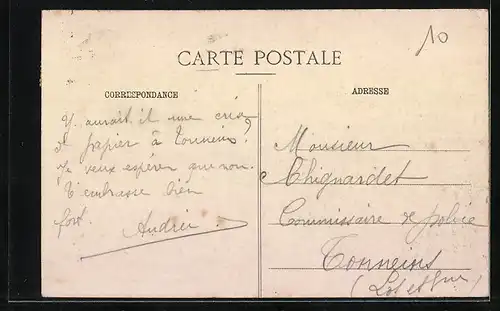 10
CARTE POSTALE
CORRESPONDANCE
Y aurait il une crise
de papier à Tonneins?
Je veux espérer que non.
T'embrasse bien
fort.
Andrée
ADRESSE
Monsieur
Chignardet
Commissaire de police
Tonneins
(Lot et Gne)